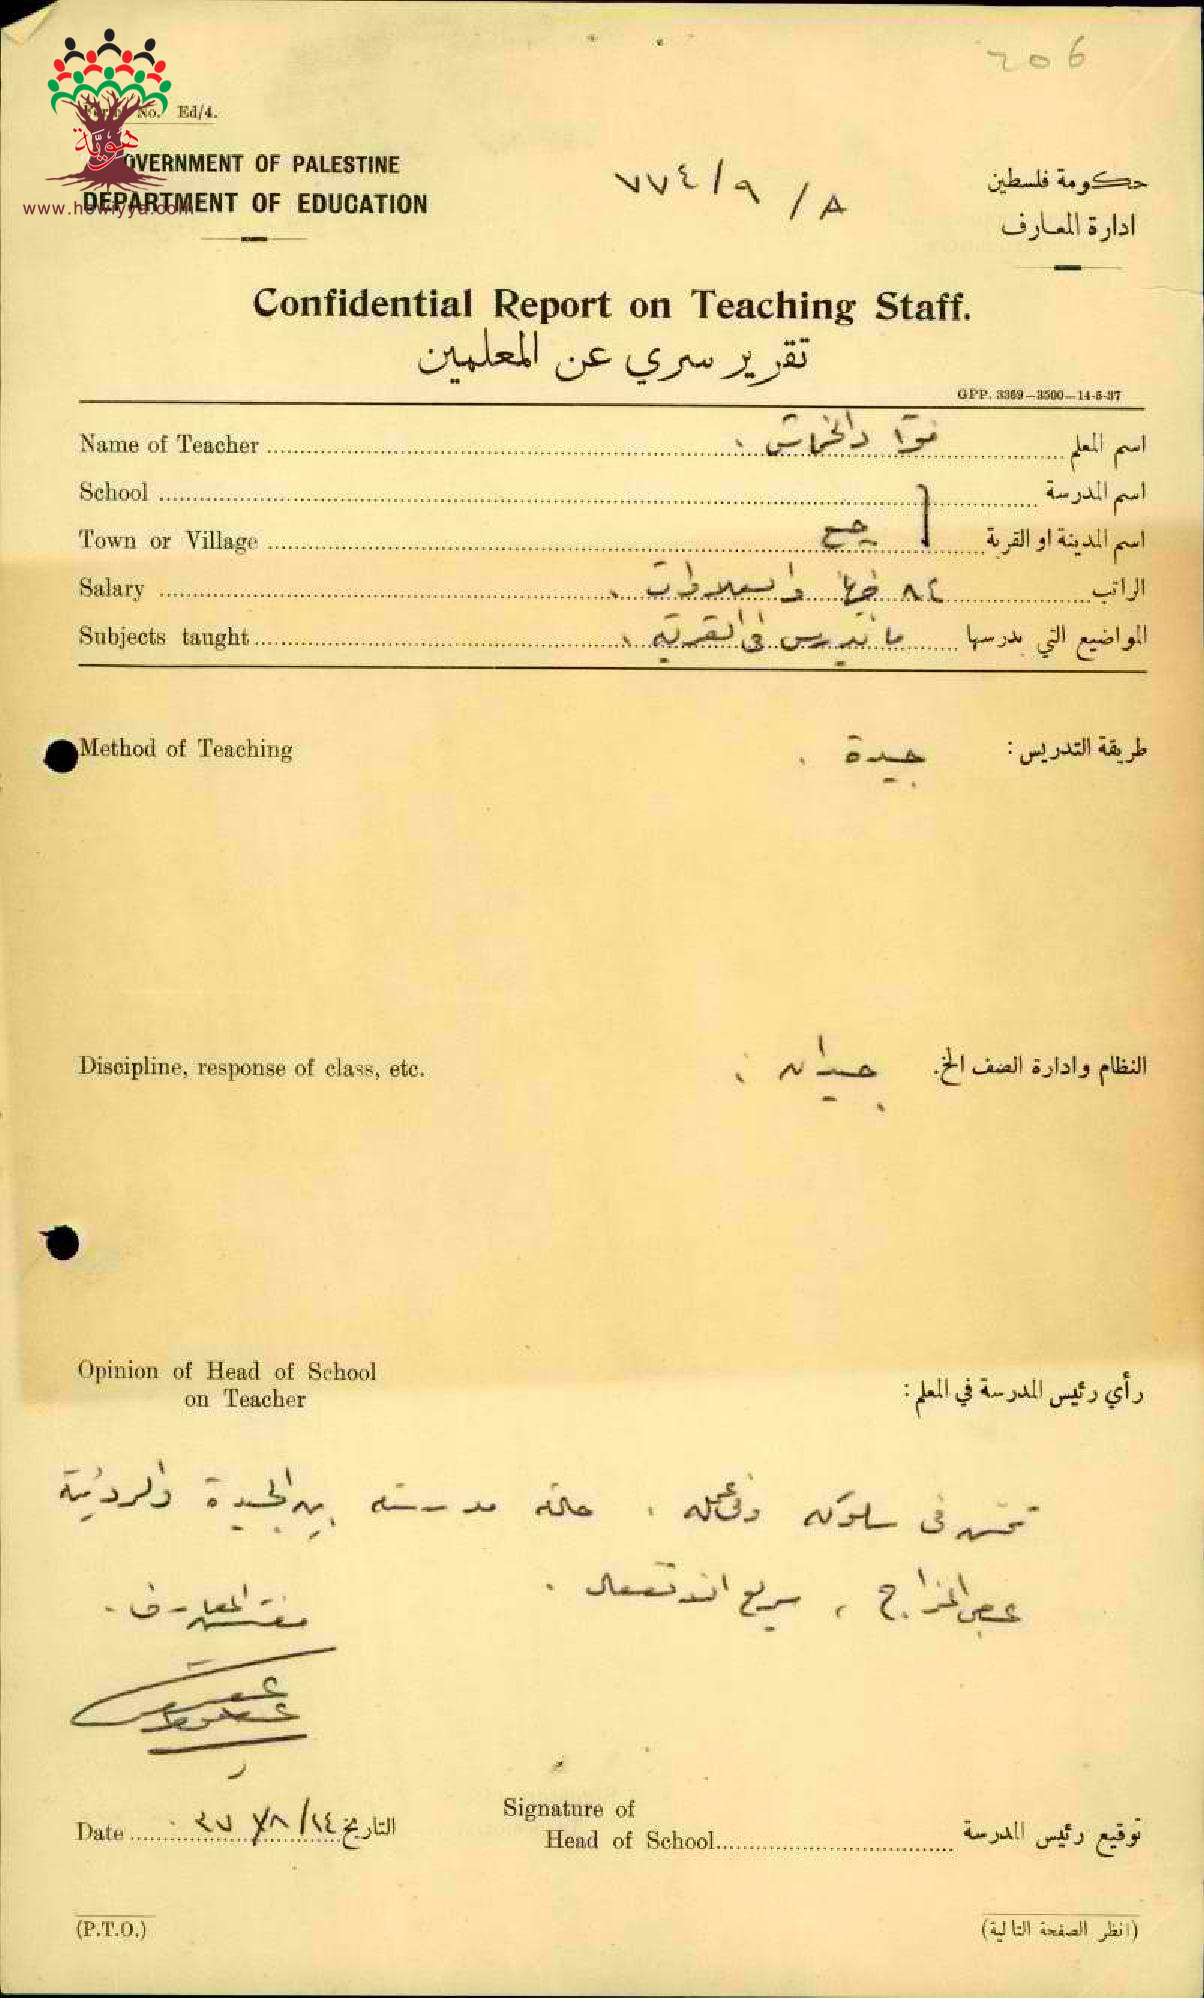 206
Form No. Ed/4.
هوية
www.howiyya.com
GOVERNMENT OF PALESTINE
DEPARTMENT OF EDUCATION
٧٧٤/٩/٨
حكومة فلسطين
ادارة المعارف
Confidential Report on Teaching Staff.
تقرير سري عن المعلمين
GPP. 3369—3500—14-5-37
Name of Teacher فؤاد الخماش . اسم المعلم
School اسم المدرسة
Town or Village جبع اسم المدينة او القرية
Salary ٨٤ الراتب
Subjects taught ما تدرس في القرية . المواضيع التي يدرسها
Method of Teaching جيدة . طريقة التدريس :
Discipline, response of class, etc. جيدان . النظام وادارة الصف الخ.
Opinion of Head of School
on Teacher
رأي رئيس المدرسة في المعلم :
تحسن في سلوكه وفي عمله . حالة مدرسته بين الجيدة والرديئة
عصبي المزاج ، سريع الانفعال .
مفتش المعارف .
Date ٣٧/٨/١٤ التاريخ
Signature of
Head of School توقيع رئيس المدرسة
(P.T.O.) (انظر الصفحة التالية)